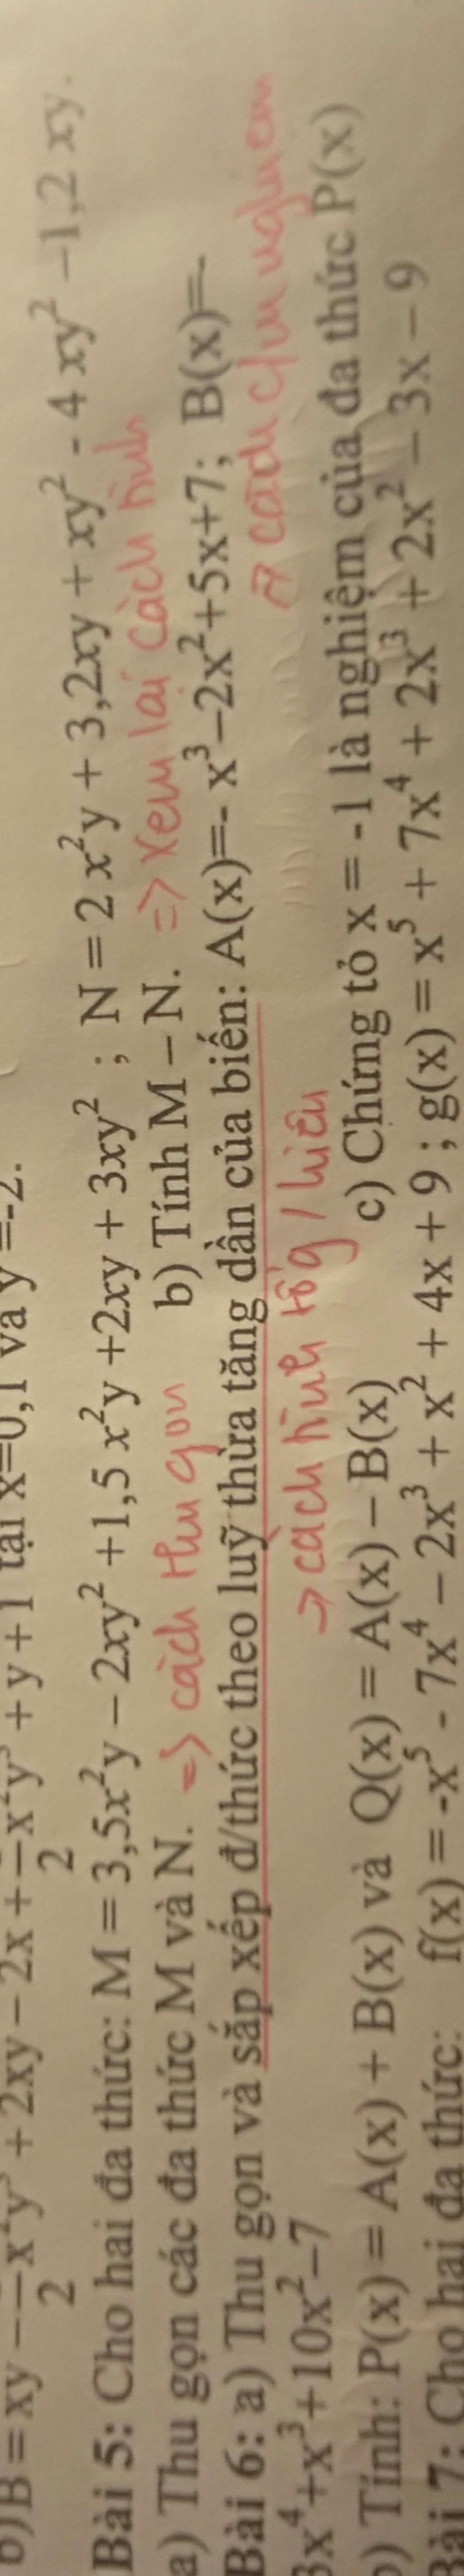 b)B = xy – 1/2 x²y³ + 2xy – 2x + 1/2 x²y³ + y + 1 tại x=0,1 và y =-2.
Bài 5: Cho hai đa thức: M = 3,5x²y – 2xy² +1,5 x²y +2xy + 3xy² ; N = 2 x²y + 3,2xy + xy² - 4 xy² –1,2 xy.
a) Thu gọn các đa thức M và N. => cách thu gọn b) Tính M – N. => xem lại cách tính
Bài 6: a) Thu gọn và sắp xếp đ/thức theo luỹ thừa tăng dần của biến: A(x)=- x³–2x²+5x+7; B(x)=-
3x⁴+x³+10x²–7
→ cách tính tổg / hiệu → cách c/m nghiệm
) Tính: P(x) = A(x) + B(x) và Q(x) = A(x) – B(x) c) Chứng tỏ x = -1 là nghiệm của đa thức P(x)
Bài 7: Cho hai đa thức: f(x) = -x⁵ - 7x⁴ – 2x³ + x² + 4x + 9 ; g(x) = x⁵ + 7x⁴ + 2x³ + 2x² – 3x – 9